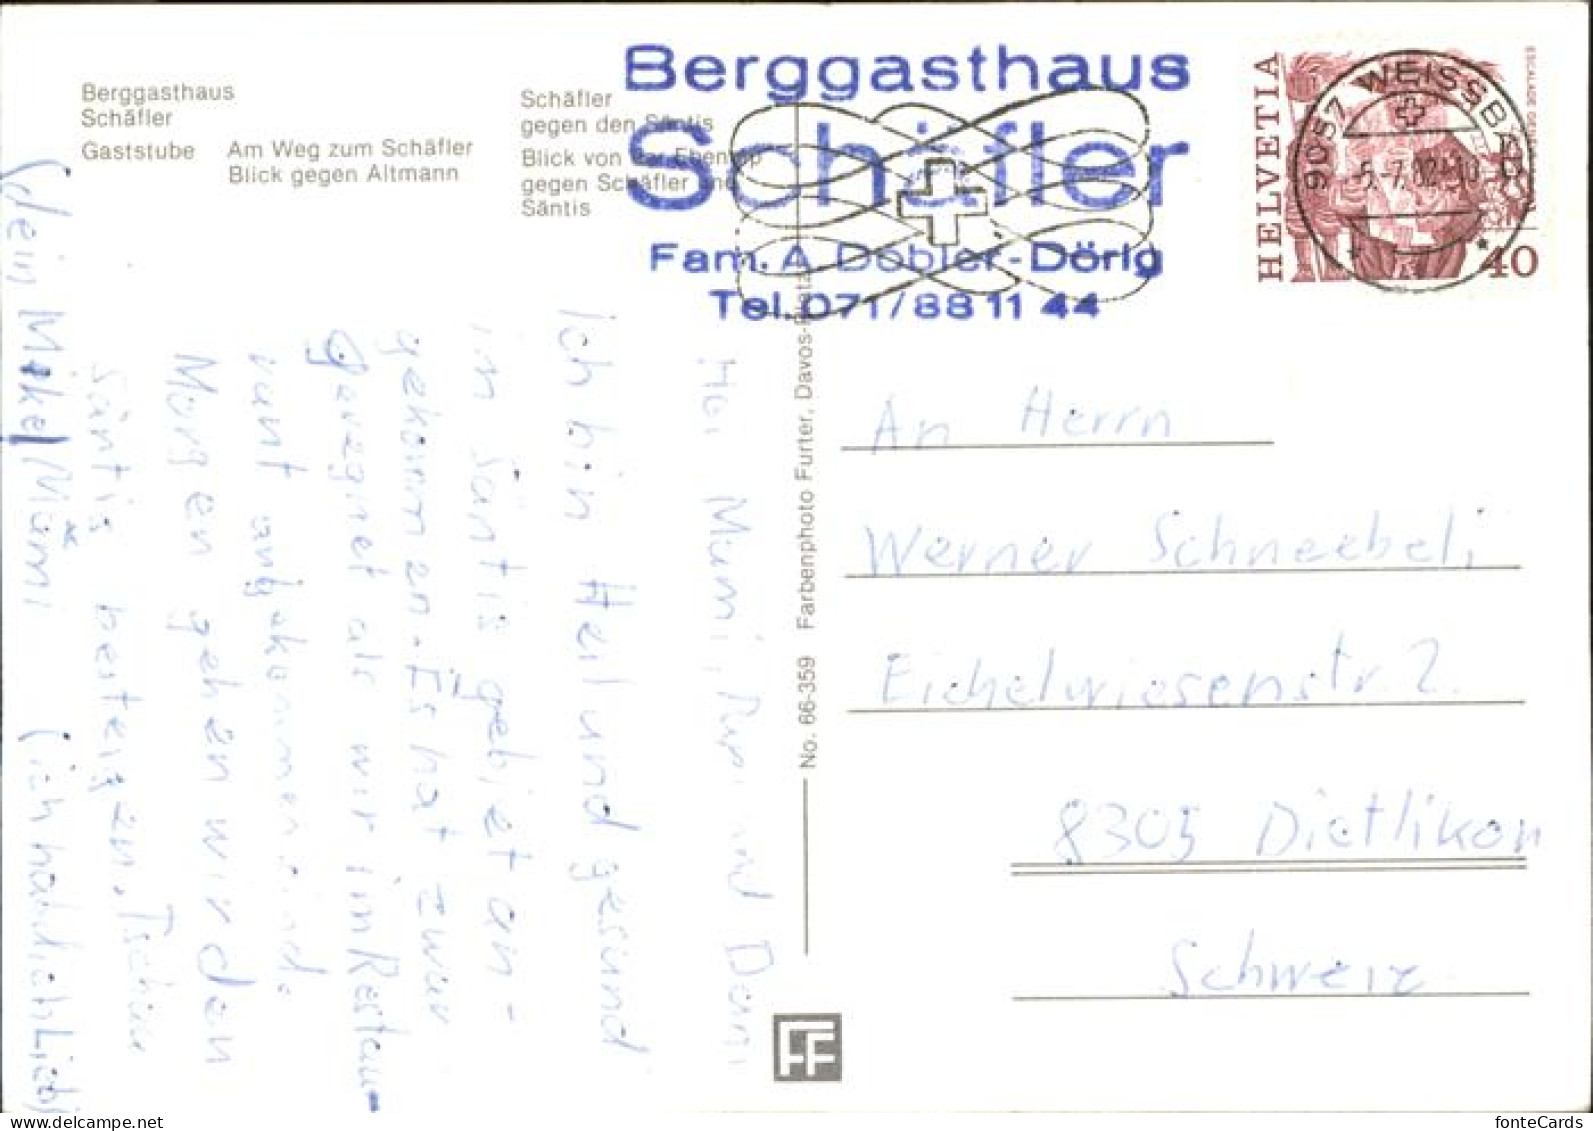 Berggasthaus
Schäfler
Gaststube
Am Weg zum Schäfler
Blick gegen Altmann
Schäfler
gegen den Säntis
Blick von der Ebenalp
gegen Schäfler und
Säntis
Berggasthaus
Schäfler
Fam. A Dobler-Dörig
Tel. 071/88 11 44
HELVETIA
40
9057 WEISSBAD
Hoi Mami, und Dani
Ich bin Heil und gesund
im Säntis gebiet an-
gekommen. Es hat zwar
geregnet als wir im Restau-
rant angekommen sind.
Morgen gehen wir den
Säntis besteigen. Tschau
(ich hab dich Lieb)
No. 66-359 Farbenphoto Furter, Davos-Platz
FF
An Herrn
Werner Schneebeli
Eichelwiesenstr. 2.
8305 Dietlikon
Schweiz
fonteCards